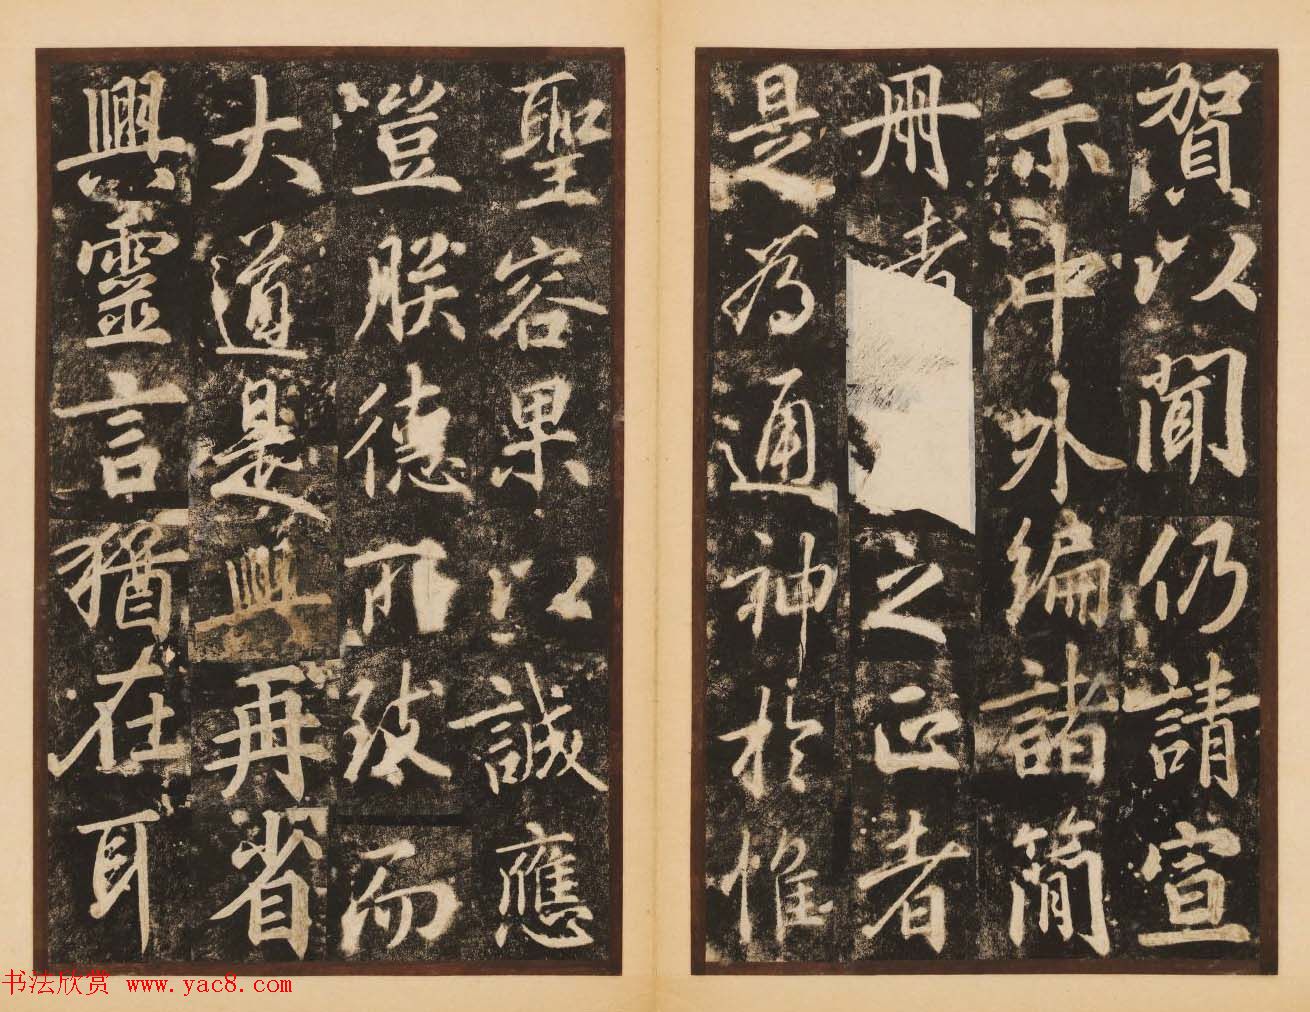 賀以聞仍請宣
示中外編諸簡
冊者之正者
是為通神於惟
聖容果以誠應
豈朕德所致而
大道是興再省
興靈言猶在耳
书法欣赏 www.yac8.com